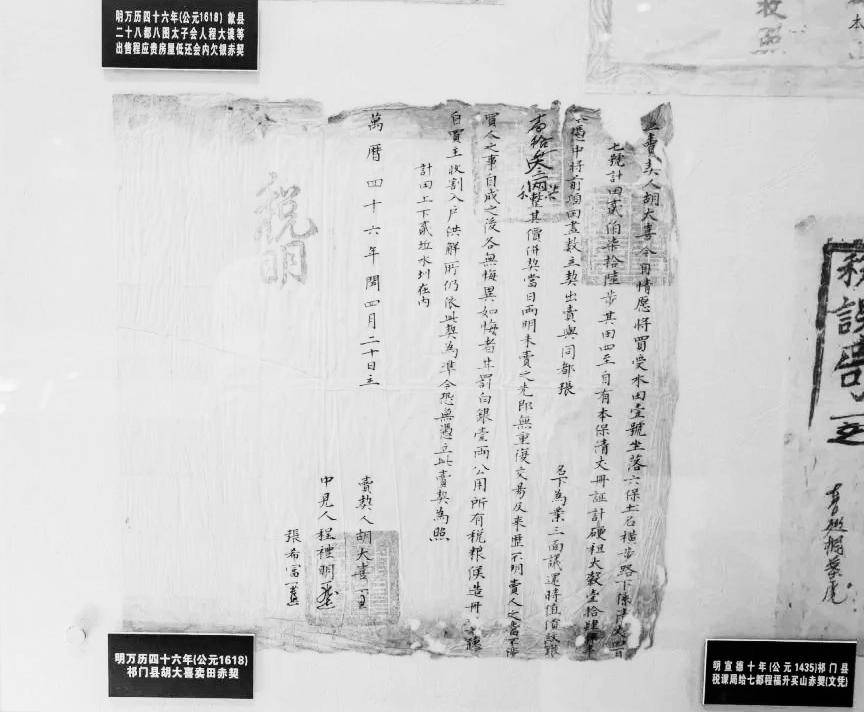 明万历四十六年(公元1618) 歙县
二十八都八图太子会人程大谟等
出售程应贵房屋低还会内欠银赤契
收照
本
立賣契人胡大喜今因情愿將買受水田壹號坐落六保土名橫步路下係
七號計田貳伯柒拾陸步其田四至自有本保清丈冊証計硬租大穀壹拾肆
憑中將前項田盡數立契出賣與同都張 名下為業三面議還時值價紋銀
整其價併契當日兩明未賣之先即無重復交易及來歷不明賣人之當不涉
買人之事自成之後各無悔異如悔者甘罰白銀壹兩公用所有稅粮候造冊 聽
自買主收割入戶供解所仍依此契為準今恐無憑立此賣契為照
計田上下貳坵水圳在內
萬曆四十六年閏四月二十日立
賣契人胡大喜
中見人程禮明
張希富
稅明
明万历四十六年(公元1618)
祁门县胡大喜卖田赤契
税課
明宣德十年(公元1435)祁门县
税课局给七都程福升买山赤契(文凭)